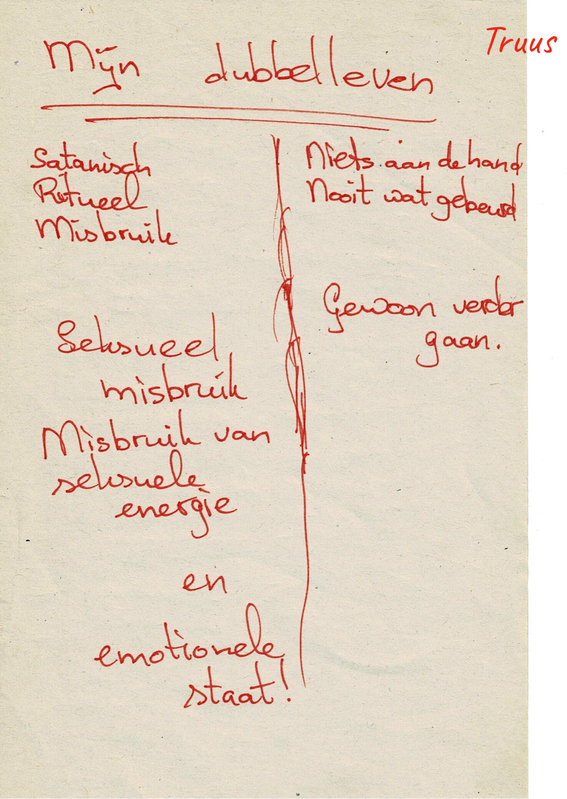 Truus
Mijn dubbelleven
Satanisch
Ritueel
Misbruik
Seksueel
misbruik
Misbruik van
seksuele
energie
en
emotionele
staat!
Niets aan de hand
Nooit wat gebeurd
Gewoon verder
gaan.